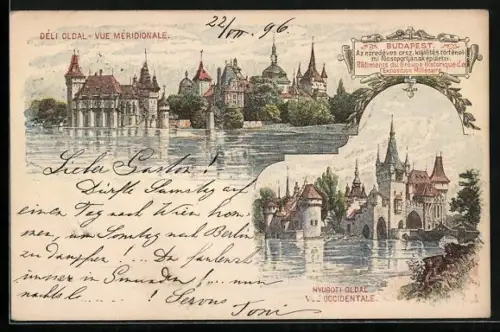 22/VII. 96.
DÉLI OLDAL - VUE MÉRIDIONALE.
BUDAPEST.
Az ezredéves orsz. kiállítás történel-
mi főcsoportjának épületei.
Bâtiments du Groupe Historique de
l'Exposition Millénaire.
Lieber Gaston!
Dürfte Samstag auf
einen Tag nach Wien kom-
men, um Sonntag nach Berlin
zu dampfen! .. Du faulenzt
immer in Gmunden! .. nun
Servus
Toni
NYUGOTI OLDAL
VUE OCCIDENTALE.